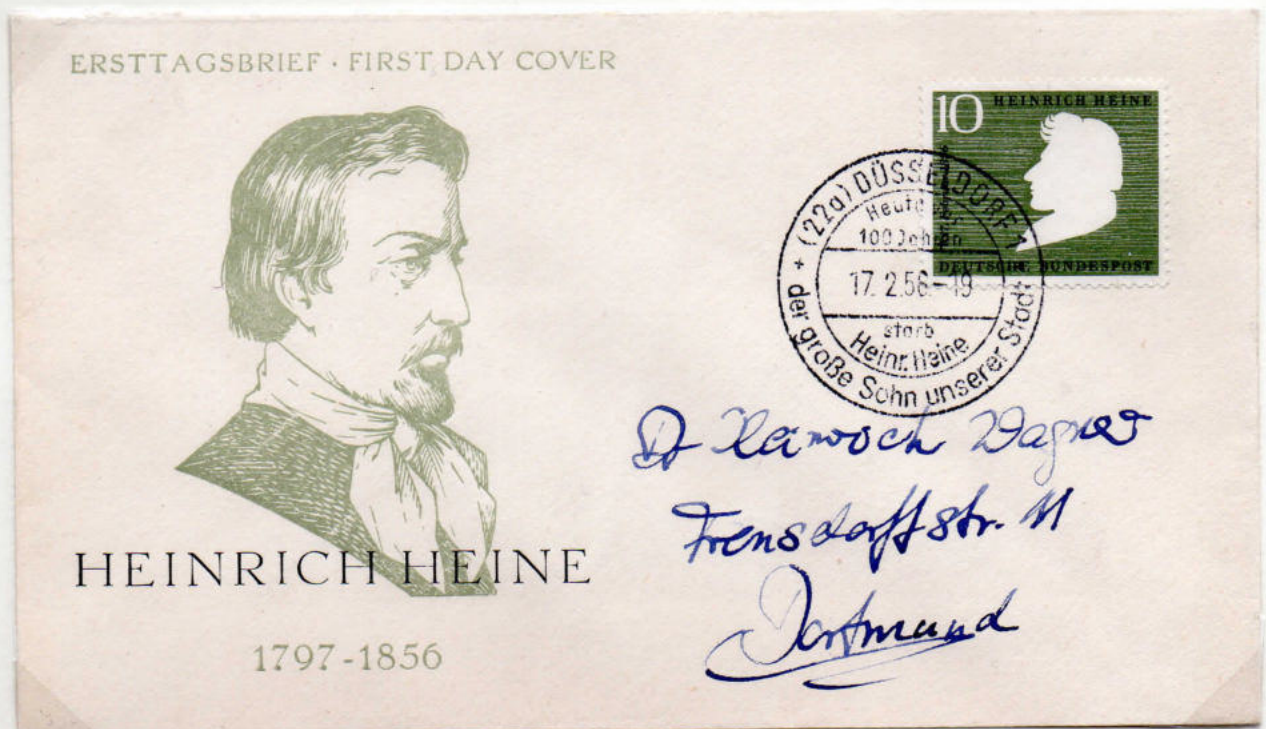 ERSTTAGSBRIEF · FIRST DAY COVER
10 HEINRICH HEINE
DEUTSCHE BUNDESPOST
(22a) DÜSSELDORF 1
Heute vor
100 Jahren
17. 2. 56.-19
starb
Heinr. Heine
+ der große Sohn unserer Stadt
Dr Wagner
Frensdorffstr. 11
Dortmund
HEINRICH HEINE
1797-1856